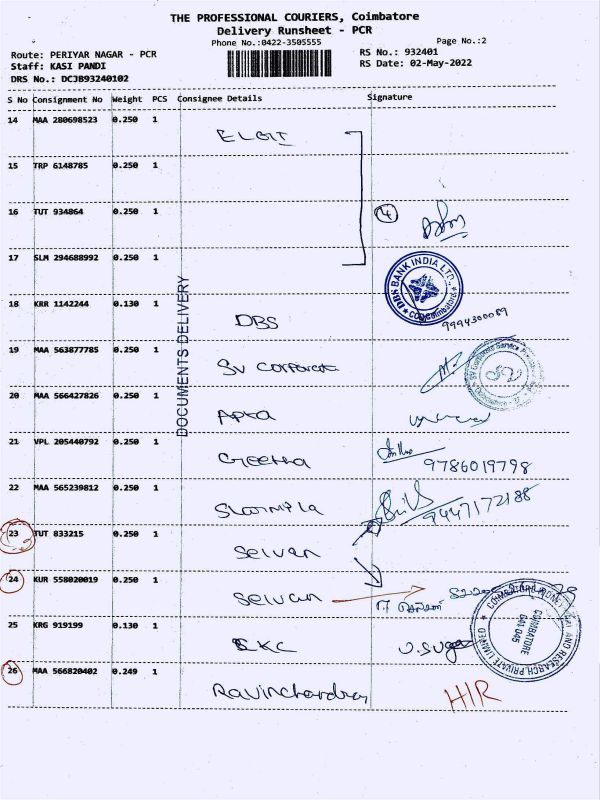 THE PROFESSIONAL COURIERS, Coimbatore
Delivery Runsheet - PCR
Phone No.:0422-3505555
Page No.:2
Route: PERIYAR NAGAR - PCR
RS No.: 932401
Staff: KASI PANDI
RS Date: 02-May-2022
DRS No.: DCJB93240102
S No Consignment No Weight PCS Consignee Details Signature
14 MAA 280698523 0.250 1
ELGI
15 TRP 6148785 0.250 1
16 TUT 934864 0.250 1
4
17 SLM 294688992 0.250 1
DBS BANK INDIA LTD.
Coimbatore
DOCUMENTS DELIVERY
18 KRR 1142244 0.130 1
DBS
9994300089
19 MAA 563877785 0.250 1
SV Corporate
20 MAA 566427826 0.250 1
21 VPL 205440792 0.250 1
Geetha
9786019798
22 MAA 565239812 0.250 1
9447172188
23 TUT 833215 0.250 1
Selvan
24 KUR 558020019 0.250 1
Selvan
25 KRG 919199 0.130 1
SKC
AND RESEARCH PRIVATE LIMITED
COIMBATORE
641 045
26 MAA 566820402 0.249 1
Ravinchandran
HIR